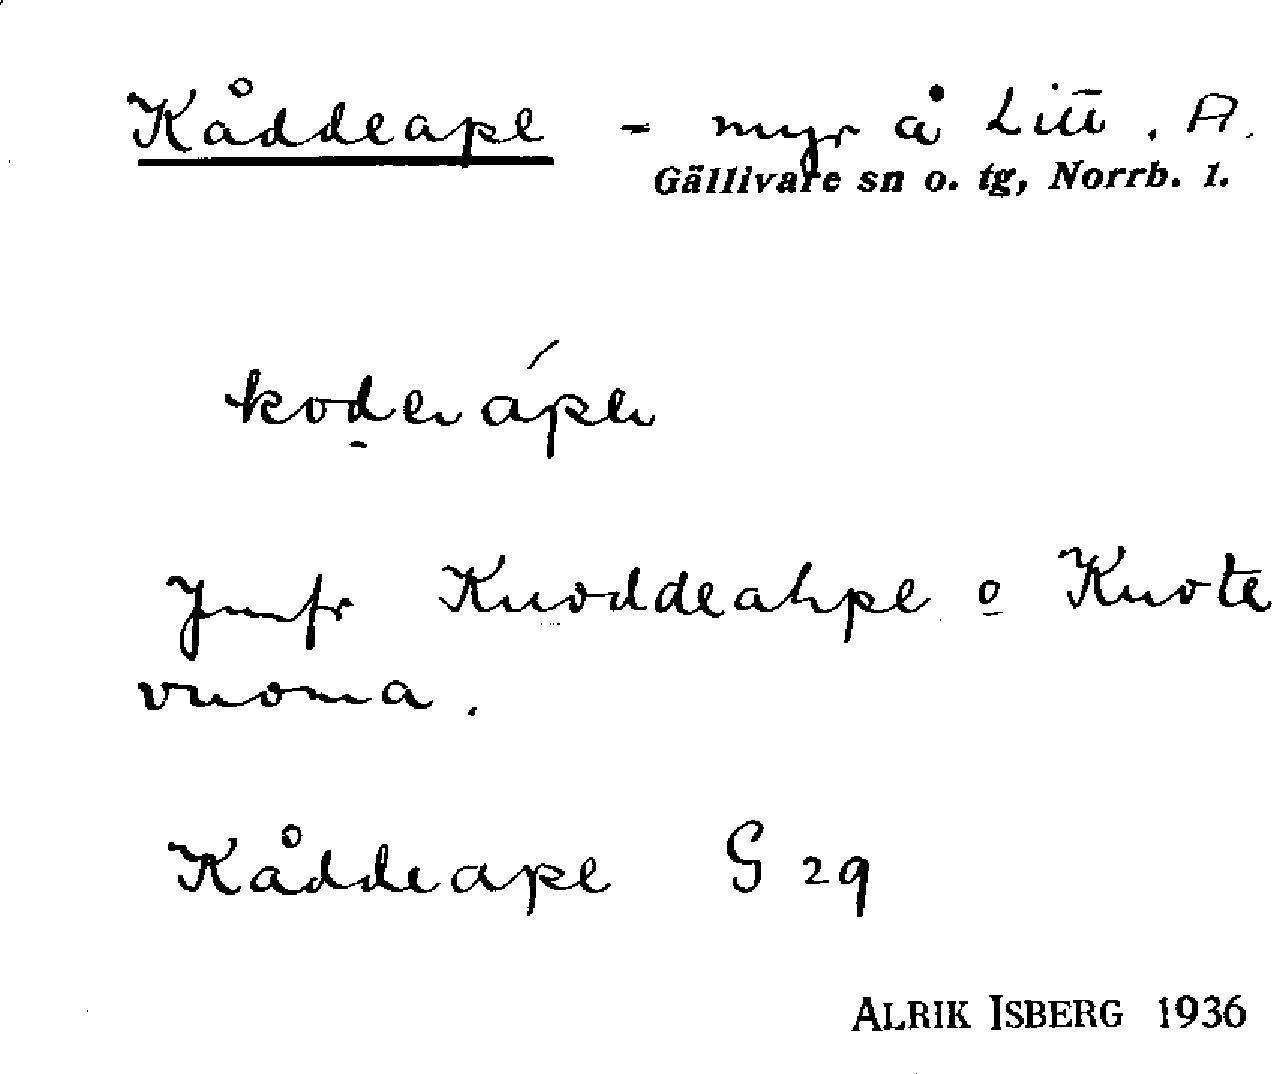 Kåddeape - myr å Litt. A.
Gällivare sn o. tg, Norrb. l.
koderápe
Jmfr Kuoddeahpe o Kuote
vuoma.
Kåddeape G 29
ALRIK ISBERG 1936